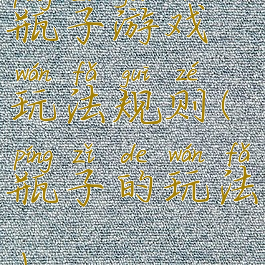 瓶子游戏
wán fǎ guī zé
玩法规则(
píng zǐ de wán fǎ
瓶子的玩法